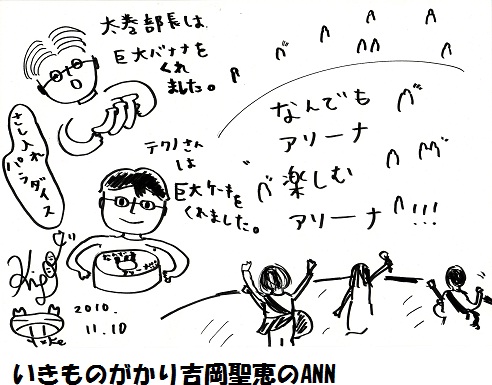 大巻部長は
巨大バナナを
くれ
ました。
さし入れ
パラダイス
テクノさん
は
巨大ケーキを
くれました。
なんでも
アリーナ
楽しむ
アリーナ!!!
2010.
11.10
いきものがかり吉岡聖恵のANN